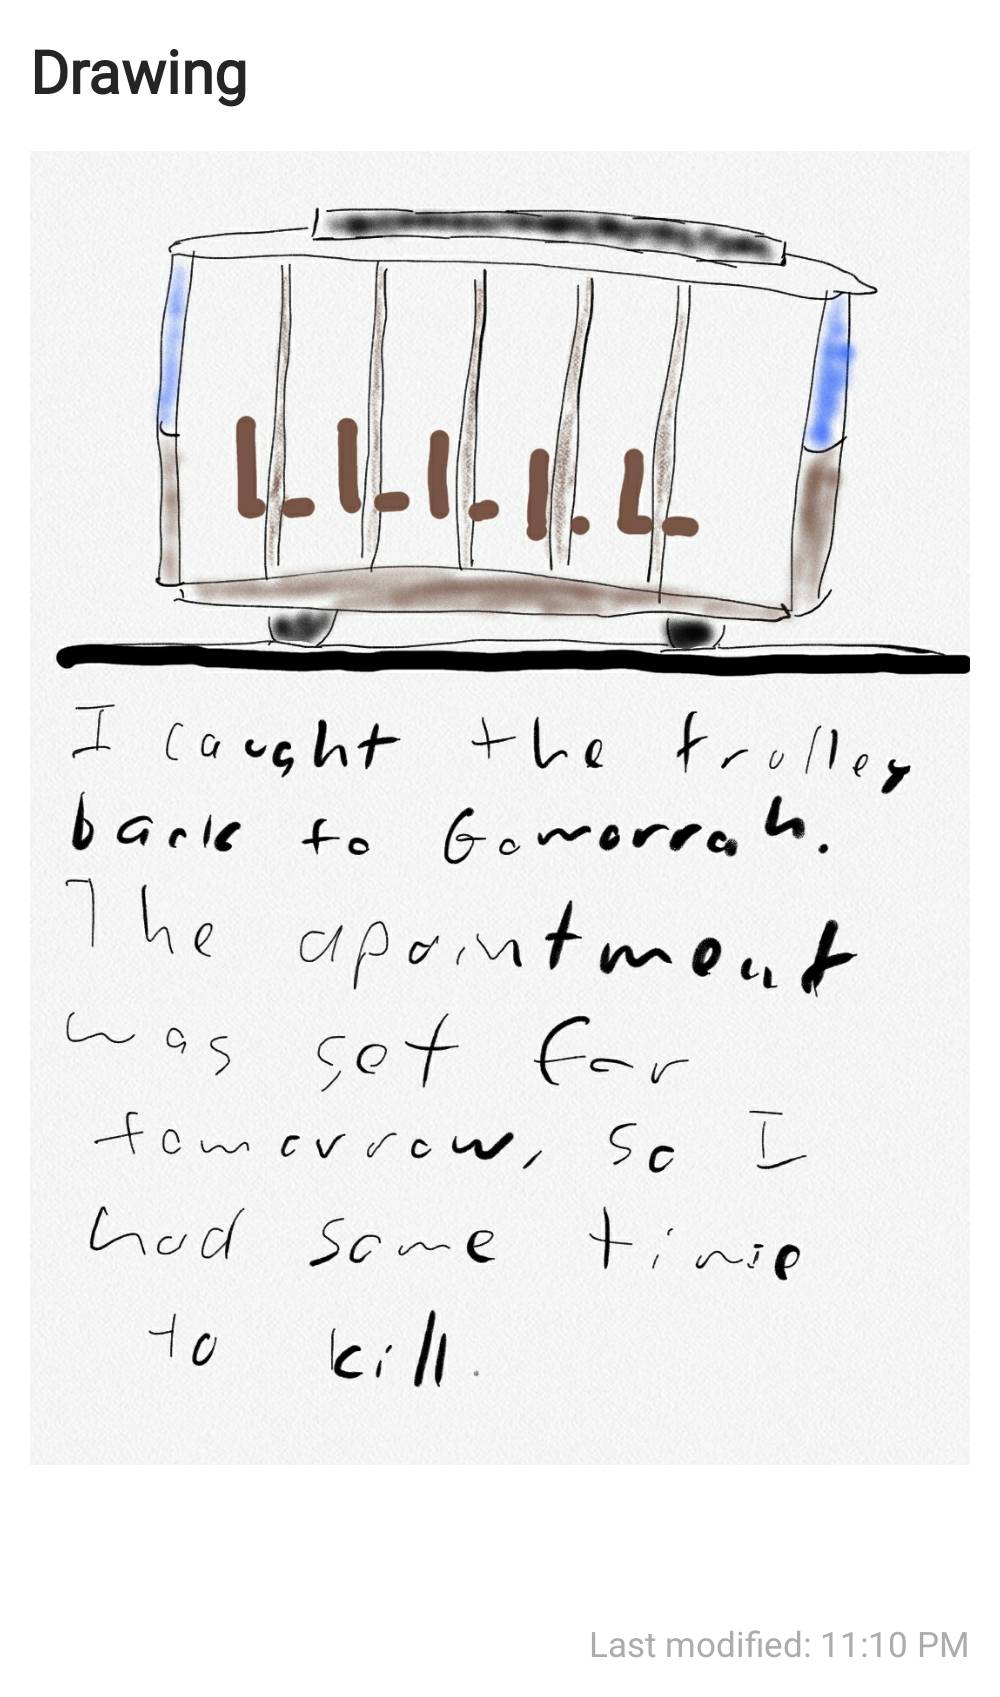 Drawing
I caught the trolley
back to Gomorrah.
The apointment
was set for
tomorrow, so I
had some time
to kill.
Last modified: 11:10 PM